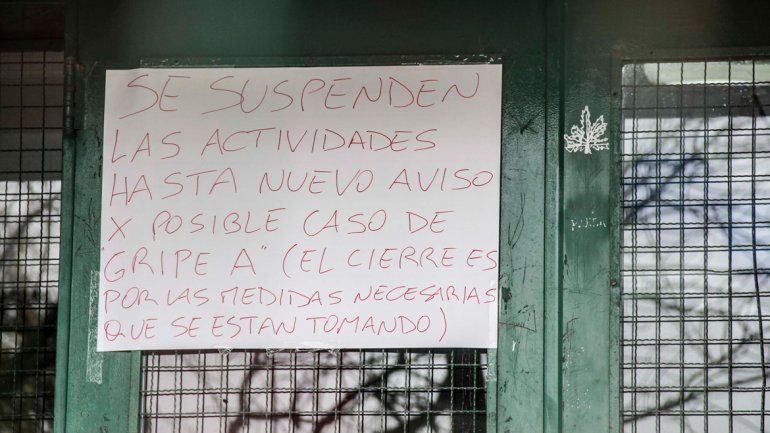 SE SUSPENDEN
LAS ACTIVIDADES
HASTA NUEVO AVISO
X POSIBLE CASO DE
"GRIPE A" (EL CIERRE ES
POR LAS MEDIDAS NECESARIAS
QUE SE ESTAN TOMANDO)